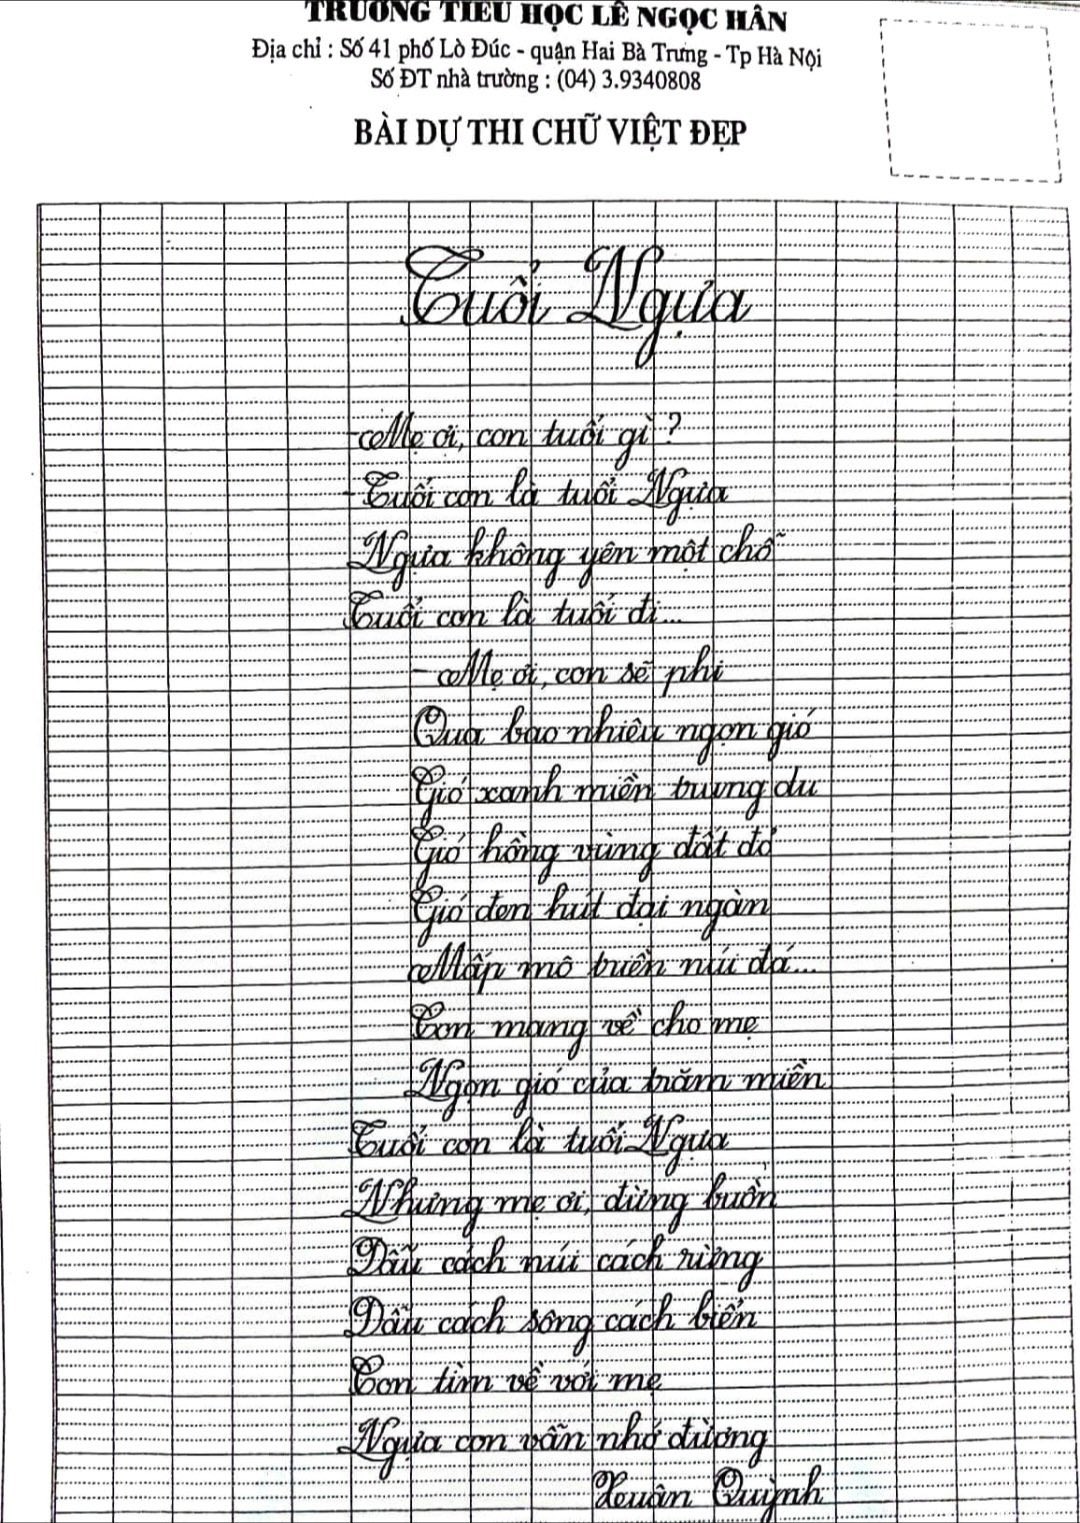 TRƯỜNG TIỂU HỌC LÊ NGỌC HÂN
Địa chỉ : Số 41 phố Lò Đúc - quận Hai Bà Trưng - Tp Hà Nội
Số ĐT nhà trường : (04) 3.9340808
BÀI DỰ THI CHỮ VIỆT ĐẸP
Tuổi Ngựa
- Mẹ ơi, con tuổi gì ?
- Tuổi con là tuổi Ngựa
Ngựa không yên một chỗ
Tuổi con là tuổi đi...
- Mẹ ơi, con sẽ phi
Qua bao nhiêu ngọn gió
Gió xanh miền trung du
Gió hồng vùng đất đỏ
Gió đen hút đại ngàn
Mấp mô triền núi đá...
Con mang về cho mẹ
Ngọn gió của trăm miền
Tuổi con là tuổi Ngựa
Nhưng mẹ ơi, đừng buồn
Dẫu cách núi cách rừng
Dẫu cách sông cách biển
Con tìm về với mẹ
Ngựa con vẫn nhớ đường
Xuân Quỳnh